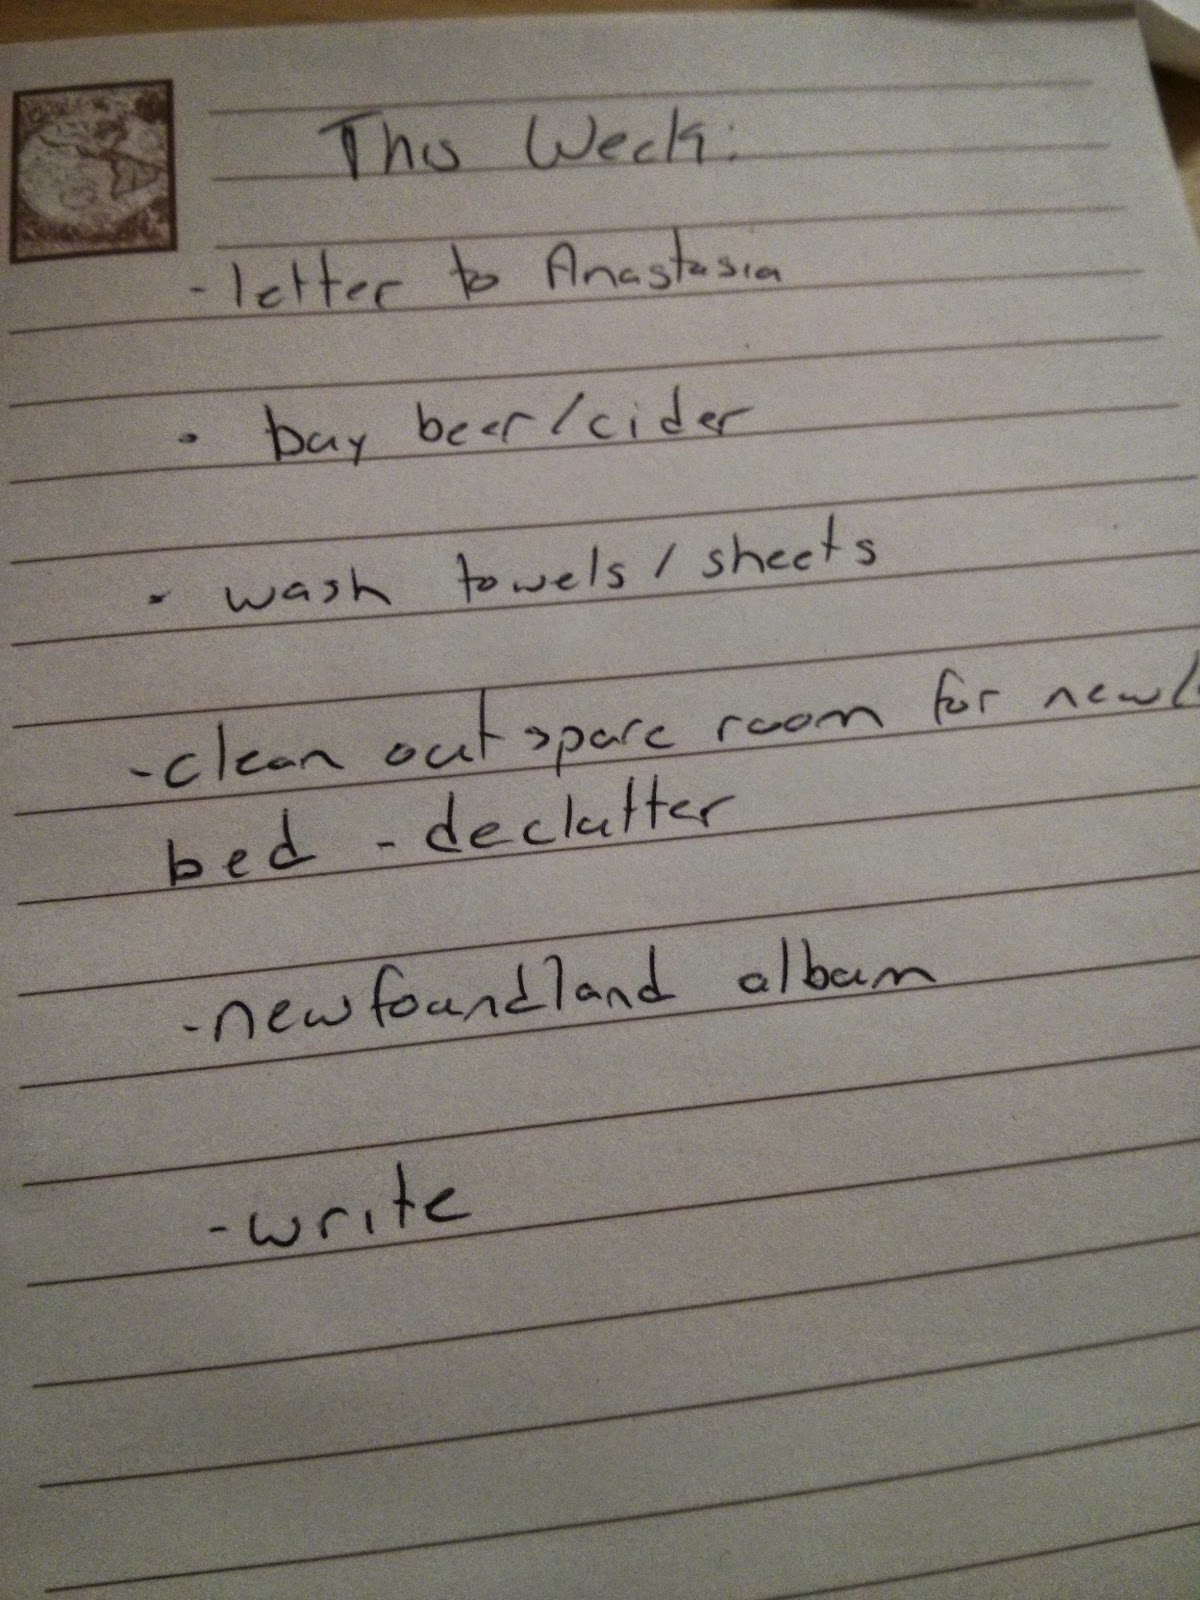 This Week:
- letter to Anastasia
- buy beer/cider
- wash towels / sheets
- clean out spare room for new
bed - declutter
- newfoundland album
- write